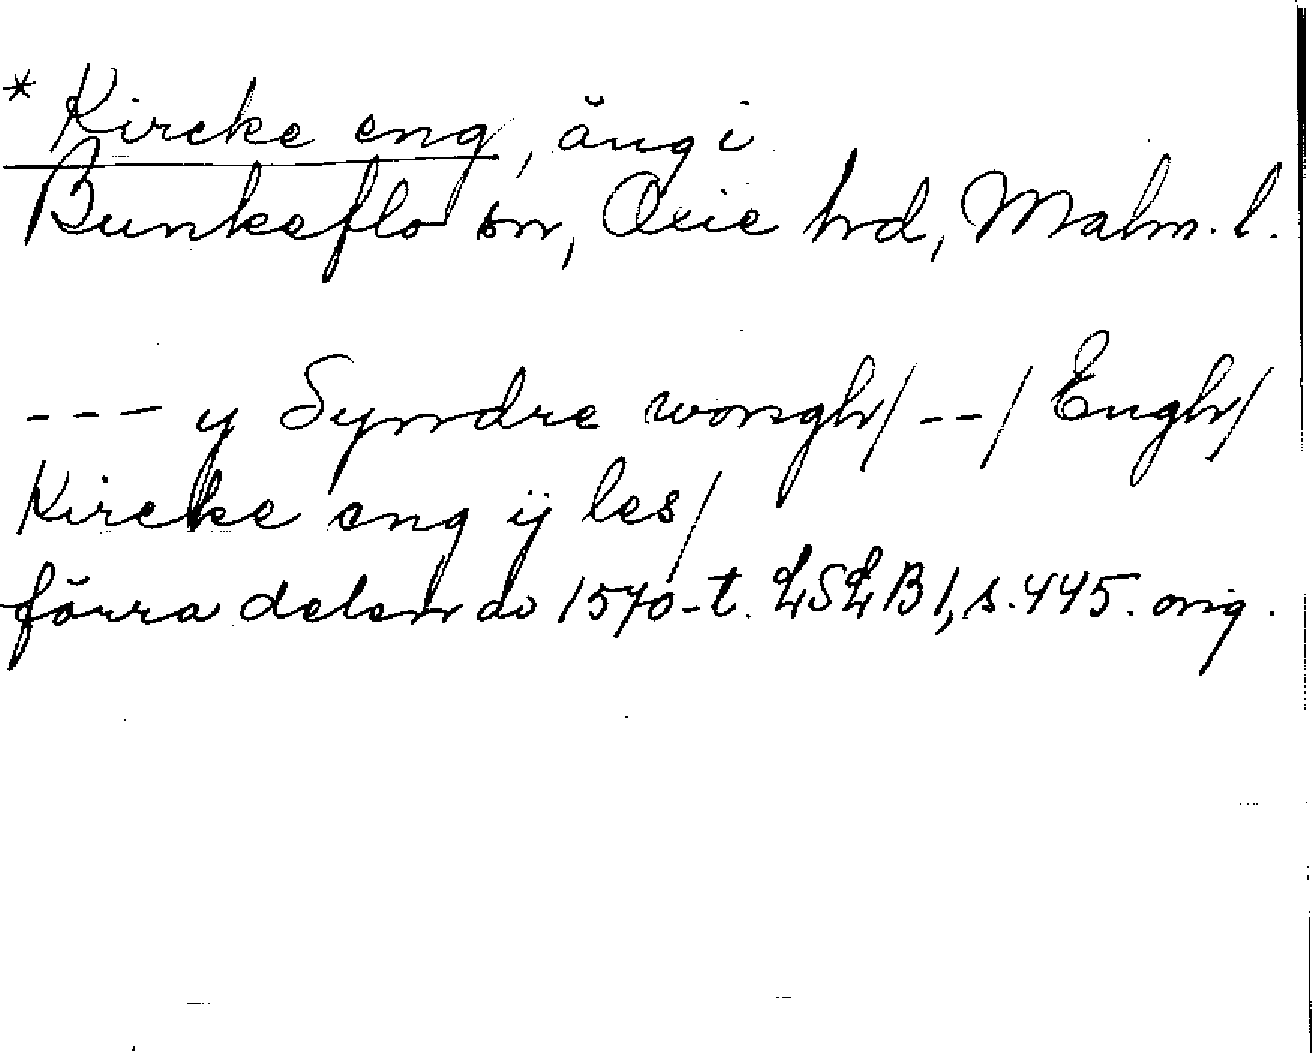 * Kircke eng, äng i
Bunkeflo sn, Oxie hd, Malm. l.
--- y Syndre wongh/ --/ Engh/
Kircke eng ij les/
förra delen av 1570-t. LSLB 1, s. 445. orig.